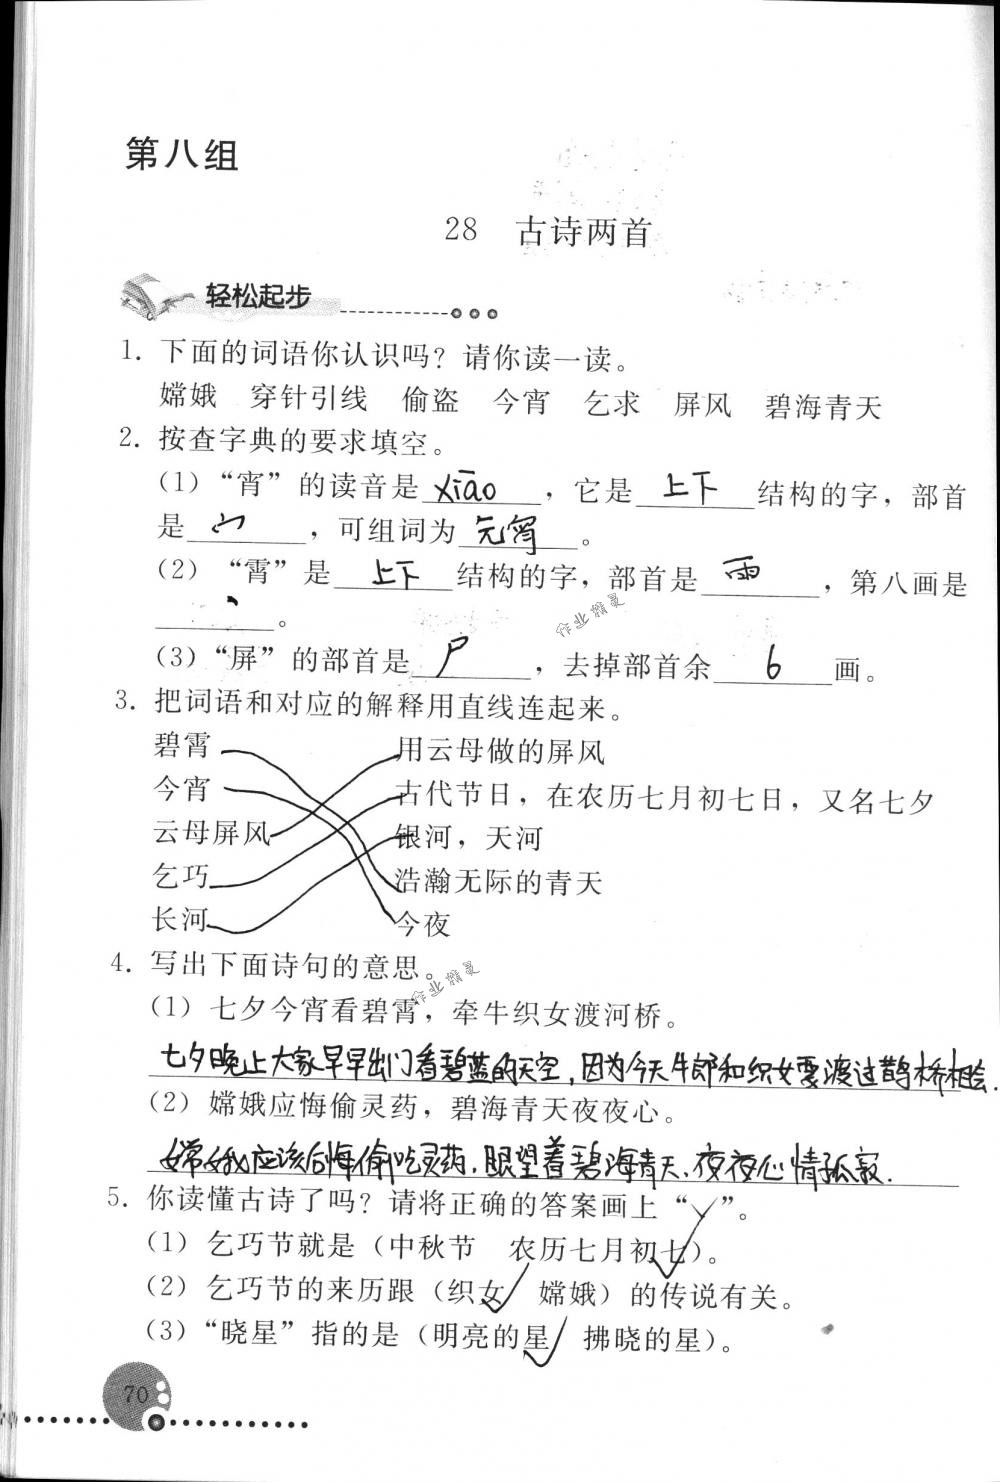 第八组
28 古诗两首
轻松起步
1. 下面的词语你认识吗？请你读一读。
嫦娥 穿针引线 偷盗 今宵 乞求 屏风 碧海青天
2. 按查字典的要求填空。
(1)“宵”的读音是 xiāo ，它是 上下 结构的字，部首
是 宀 ，可组词为 元宵 。
(2)“霄”是 上下 结构的字，部首是 雨 ，第八画是
丶 。
作业精灵
(3)“屏”的部首是 尸 ，去掉部首余 6 画。
3. 把词语和对应的解释用直线连起来。
碧霄 用云母做的屏风
今宵 古代节日，在农历七月初七日，又名七夕
云母屏风 银河，天河
乞巧 浩瀚无际的青天
长河 今夜
4. 写出下面诗句的意思。
作业精灵
(1) 七夕今宵看碧霄，牵牛织女渡河桥。
七夕晚上大家早早出门看碧蓝的天空，因为今天牛郎和织女要渡过鹊桥相会.
(2) 嫦娥应悔偷灵药，碧海青天夜夜心。
嫦娥应该后悔偷吃灵药.眼望着碧海青天.夜夜心情孤寂.
5. 你读懂古诗了吗？请将正确的答案画上“√”。
(1) 乞巧节就是（中秋节 农历七月初七√）。
(2) 乞巧节的来历跟（织女√ 嫦娥）的传说有关。
(3)“晓星”指的是（明亮的星√ 拂晓的星）。
70